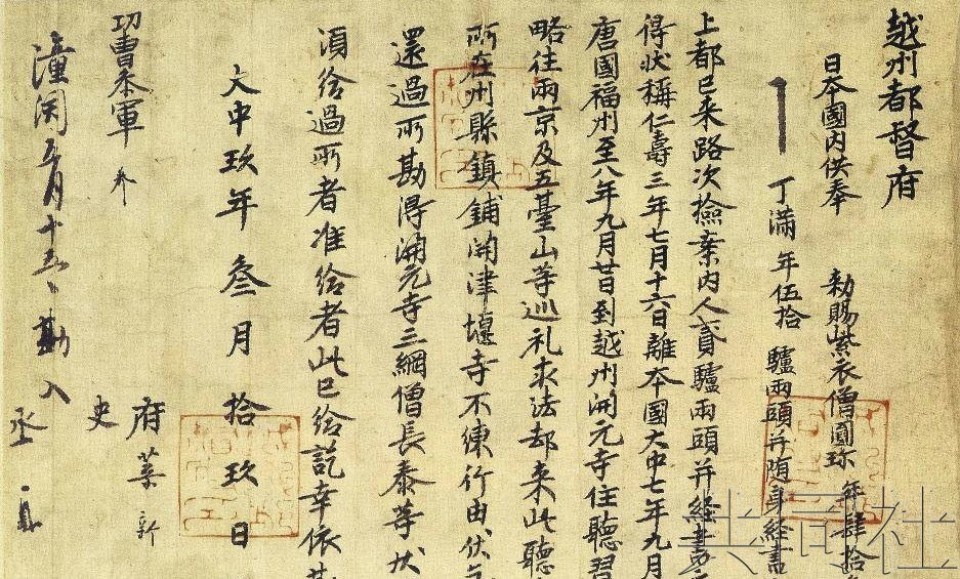 越州都督府
日本國内供奉 勅賜紫衣僧圓珎年肆拾
丁滿年伍拾 驢兩頭并随身經書
上都已来路次撿案内人貳驢兩頭并經書
得狀稱仁壽三年七月十六日離本國大中七年九月
唐國福州至八年九月廿日到越州開元寺住聽習
略往兩京及五臺山等巡礼求法却来此聽
所在州縣鎮鋪開津堰寺不練行由伏
還過所勘得開元寺三綱僧長泰等狀
須給過所者准給者此已給訖幸依
大中玖年叁月拾玖日
府葉新
功曹参軍
史
潼関五月十五日勘入
丞
共同社